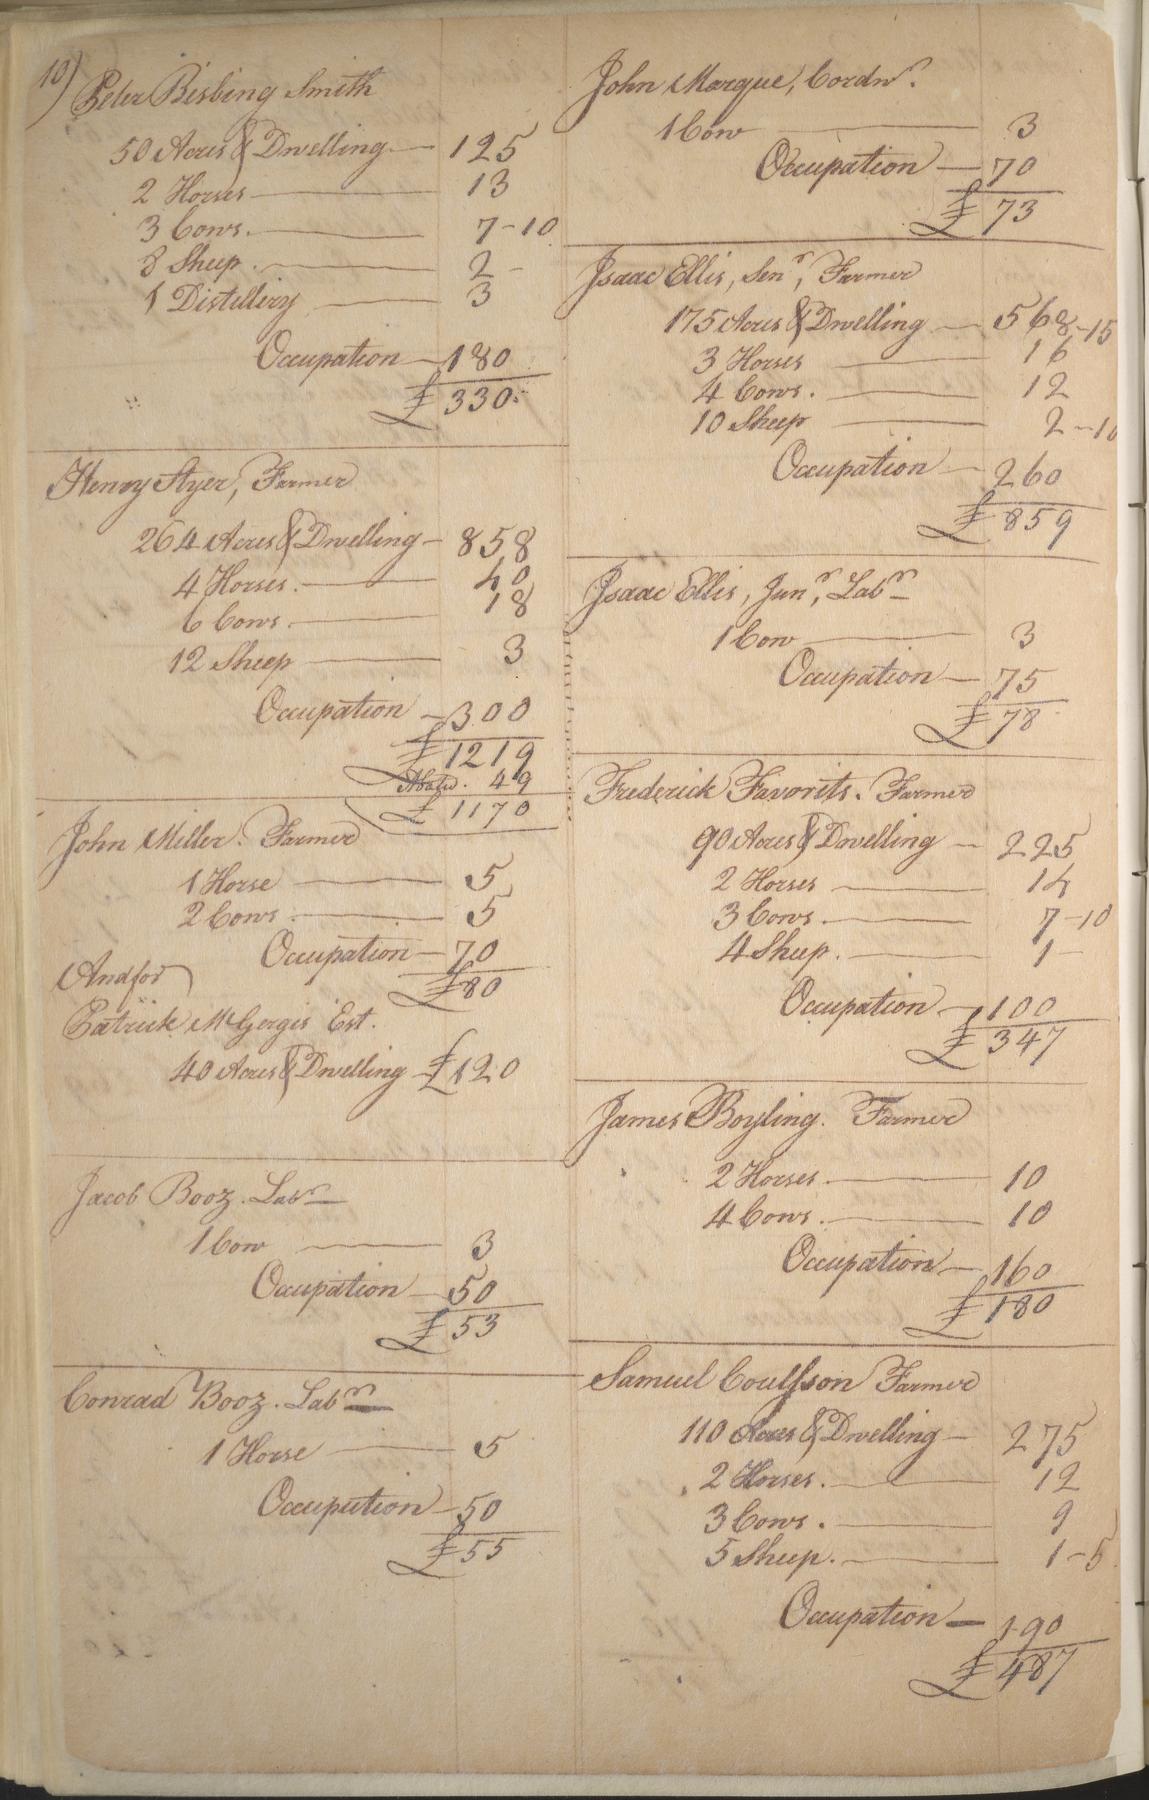 10)
Peter Bisbing Smith
50 Acres & Dwelling — 125
2 Horses — 13
3 Cows. — 7-10
8 Sheep. — 2 -
1 Distillery — 3
Occupation — 180
£ 330.
Henry Styer, Farmer
264 Acres & Dwelling — 858
4 Horses. — 40
6 Cows. — 18
12 Sheep — 3
Occupation — 300
£ 1219
Abated. 49
£ 1170
John Miller. Farmer
1 Horse — 5
2 Cows. — 5
Occupation — 70
£80
And for
Patrick McGergis Est.
40 Acres & Dwelling — £120
Jacob Booz. Labr
1 Cow — 3
Occupation — 50
£ 53
Conrad Booz. Labr
1 Horse — 5
Occupation — 50
£55
John Marque, Cordnr.
1 Cow — 3
Occupation — 70
£ 73
Isaac Ellis, Senr, Farmer
175 Acres & Dwelling — 568-15
3 Horses — 16
4 Cows. — 12
10 Sheep — 2-10
Occupation — 260
£ 859
Isaac Ellis, Junr, Labr
1 Cow — 3
Occupation — 75
£ 78
Frederick Favorits. Farmer
90 Acres & Dwelling — 225
2 Horses — 14
3 Cows. — 7-10
4 Sheep. — 1 -
Occupation — 100
£ 347
James Boyling. Farmer
2 Horses. — 10
4 Cows. — 10
Occupation — 160
£ 180
Samuel Coulsson Farmer
110 Acres & Dwelling — 275
2 Horses. — 12
3 Cows. — 9
5 Sheep. — 1-5
Occupation — 190
£ 487